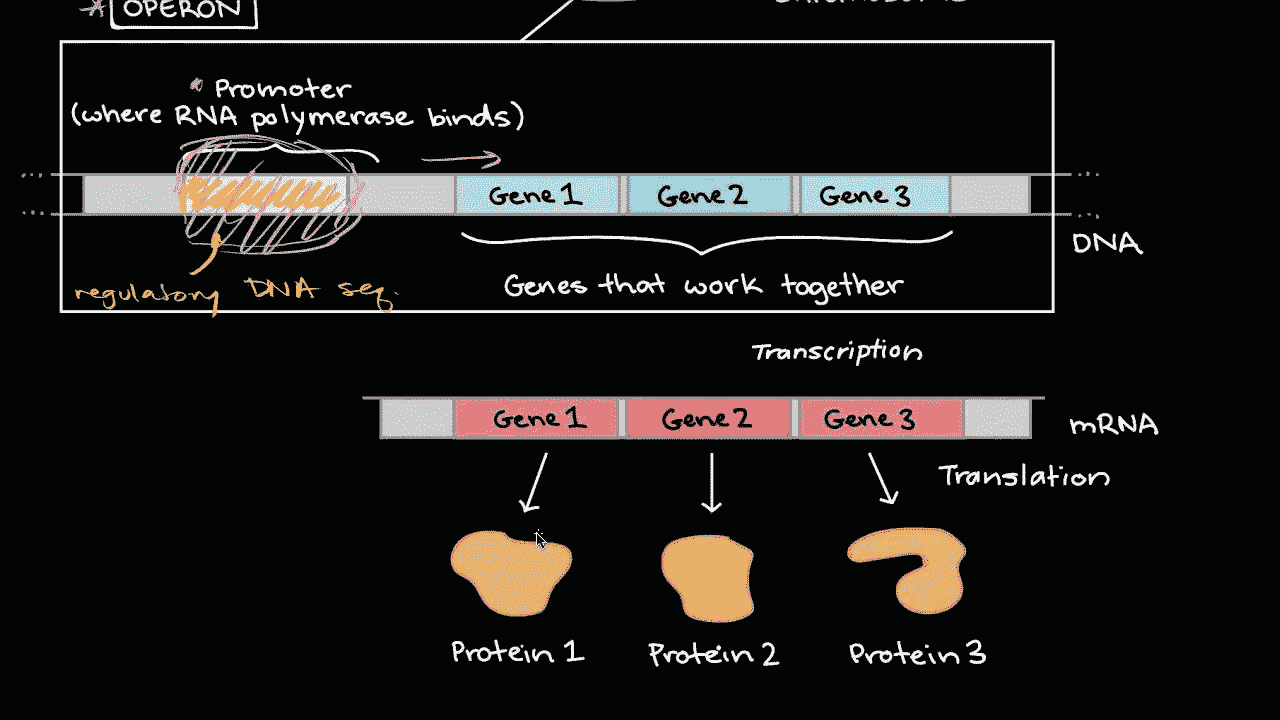 * OPERON
* Promoter
(where RNA polymerase binds)
Gene 1 Gene 2 Gene 3
DNA
regulatory DNA seq.
Genes that work together
Transcription
Gene 1 Gene 2 Gene 3
mRNA
Translation
Protein 1 Protein 2 Protein 3